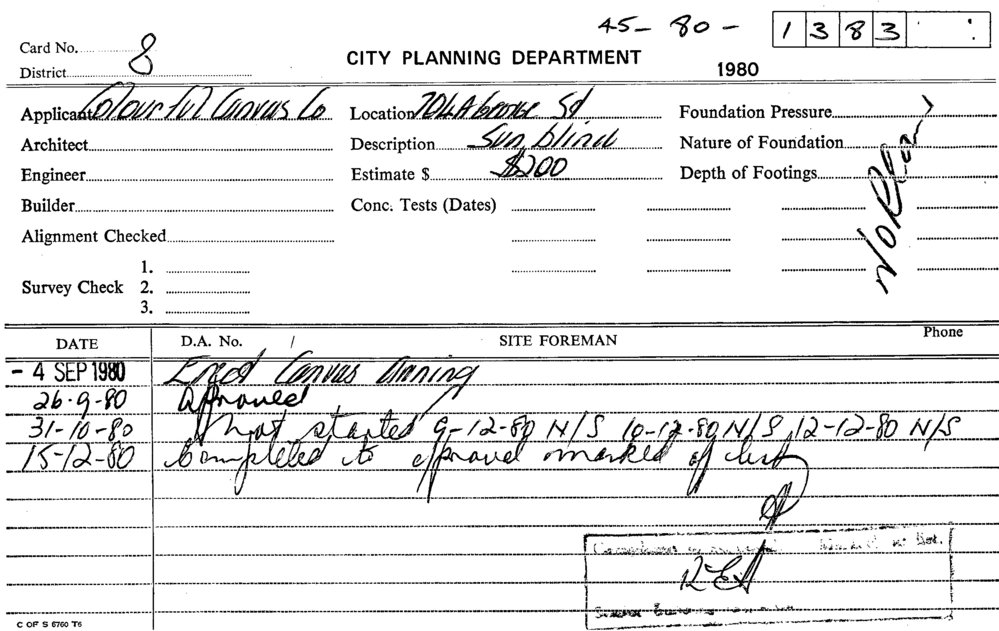 45-80-1383
Card No. 8
District
CITY PLANNING DEPARTMENT
1980
Applicant Colourful Canvas Co
Location 704A George St
Foundation Pressure
Architect
Description Sun blind
Nature of Foundation
Engineer
Estimate $ $200
Depth of Footings
No Plan
Builder
Conc. Tests (Dates)
Alignment Checked
Survey Check
1.
2.
3.
DATE D.A. No. SITE FOREMAN Phone
- 4 SEP 1980 Erect Canvas Awning
26-9-80 Approved
31-10-80 Not started 9-12-80 N/S 10-12-80 N/S 12-12-80 N/S
15-12-80 Completed to aproval marked of list
C OF S 6760 T6